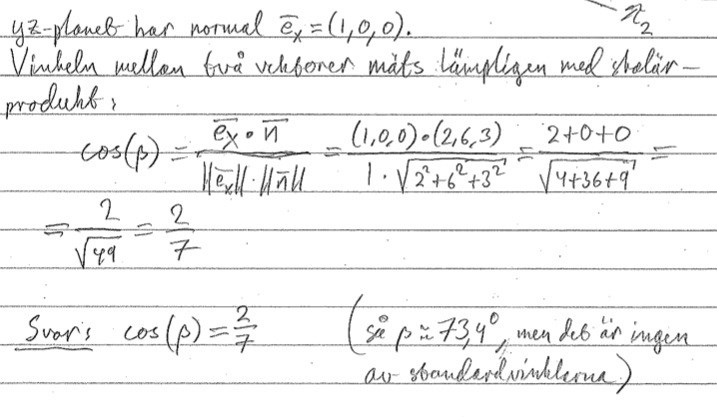 π₂
yz-planet har normal e̅ₓ = (1,0,0).
Vinkeln mellan två vektorer mäts lämpligen med skalär-
produkt:
cos(β) = e̅ₓ • n̅ / (||e̅ₓ|| · ||n̅||) = (1,0,0)•(2,6,3) / (1 · √(2²+6²+3²)) = (2+0+0) / √(4+36+9) =
= 2/√49 = 2/7
Svar: cos(β) = 2/7 (så β ≈ 73,4°, men det är ingen
av standardvinklarna)